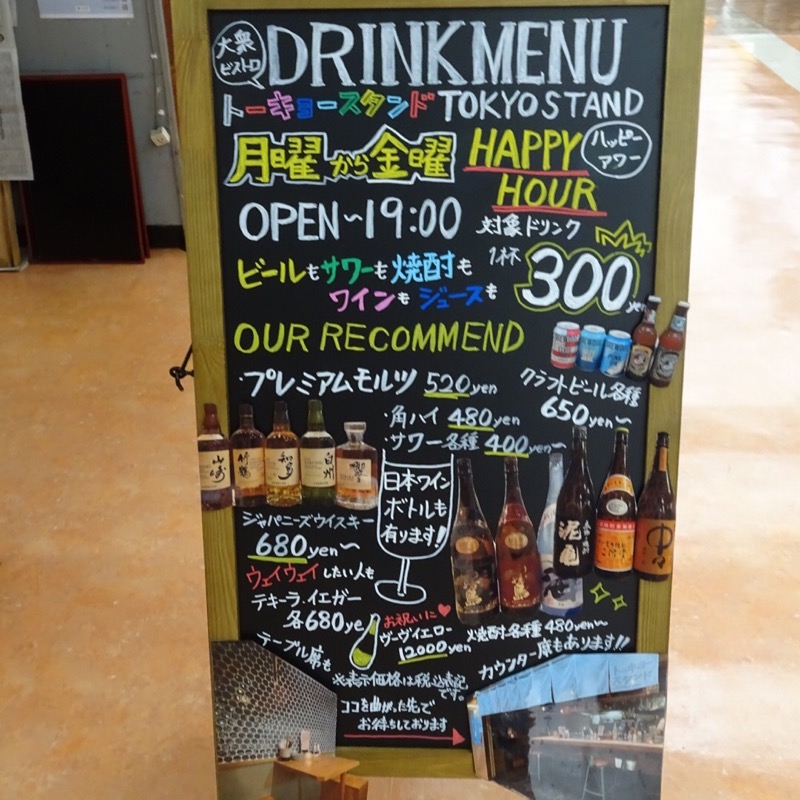 大衆
ビストロ
DRINK MENU
トーキョースタンド TOKYO STAND
月曜から金曜
HAPPY HOUR
ハッピーアワー
OPEN~19:00
対象ドリンク
1杯 300yen
ビールもサワーも焼酎も
ワインもジュースも
OUR RECOMMEND
・プレミアムモルツ 520yen
クラフトビール各種
650yen~
・角ハイ 480yen
・サワー各種 400yen~
山崎
竹鶴
知多
白州
響
日本ワイン
ボトルも
有ります!
ジャパニーズウイスキー
680yen~
ウェイウェイしたい人も
テキーラ.イエガー
各680ye
お祝いに
ヴーヴイエロー
12000yen
焼酎各種480yen~
テーブル席も
カウンター席もあります!!
※表示価格は税込表記です。
ココを曲がった先で
お待ちしております
中々